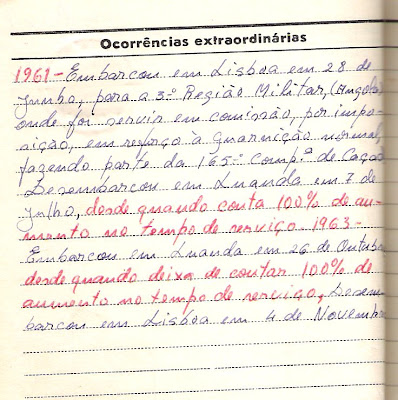 Ocorrências extraordinárias
1961 - Embarcou em Lisboa em 28 de
Junho, para a 3.ª Região Militar, (Angola)
onde foi servir em comissão, por impo-
sição, em reforço à Guarnição normal,
fazendo parte da 165.ª Comp.ª de Caçad
Desembarcou em Luanda em 7 de
Julho, desde quando conta 100% de au-
mento no tempo de serviço. 1963-
Embarcou em Luanda em 26 de Outubro
desde quando deixa de contar 100% de
aumento no tempo de serviço, Desem
barcou em Lisboa em 4 de Novembro